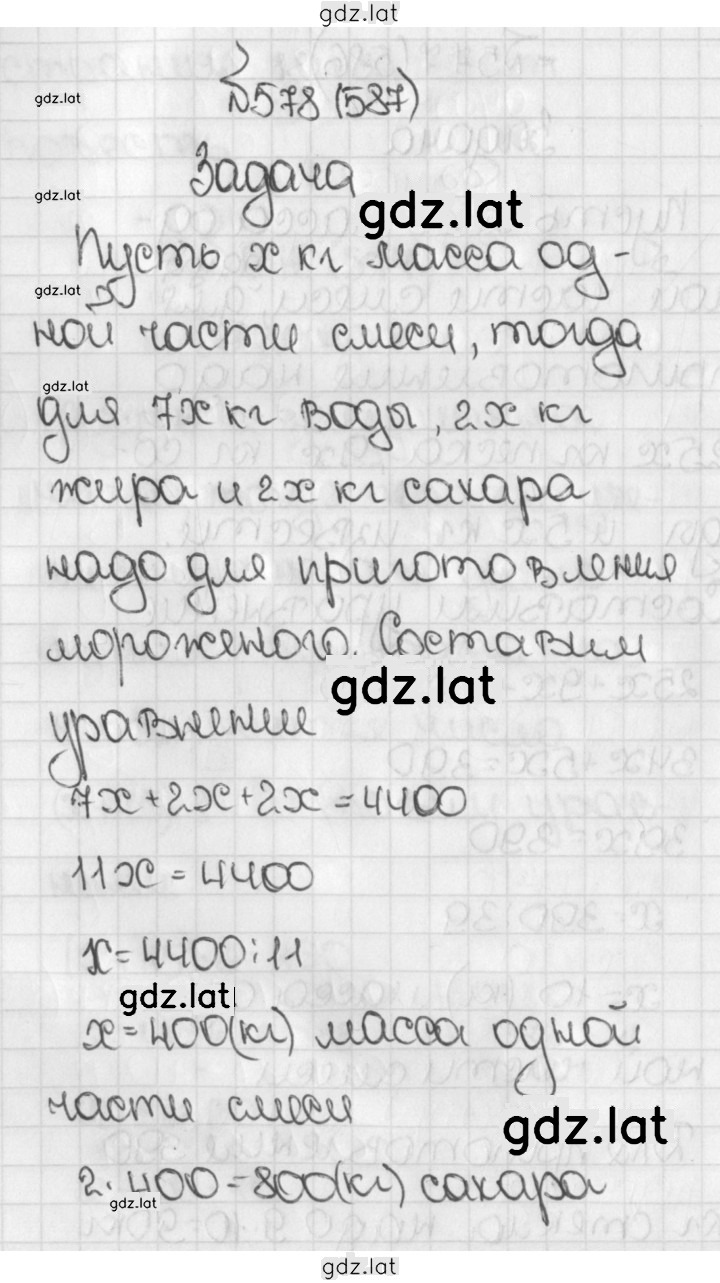 gdz.lat
№578 (587)
gdz.lat
Задача
gdz.lat
gdz.lat
Пусть x кг масса од-
gdz.lat
ной части смеси, тогда
gdz.lat
для 7x кг воды, 2x кг
жира и 2x кг сахара
надо для приготовления
мороженого. Составим
gdz.lat
уравнение
7x+2x+2x=4400
11x=4400
x=4400:11
gdz.lat
x=400(кг) масса одной
части смеси
gdz.lat
2·400=800(кг) сахара
gdz.lat
gdz.lat